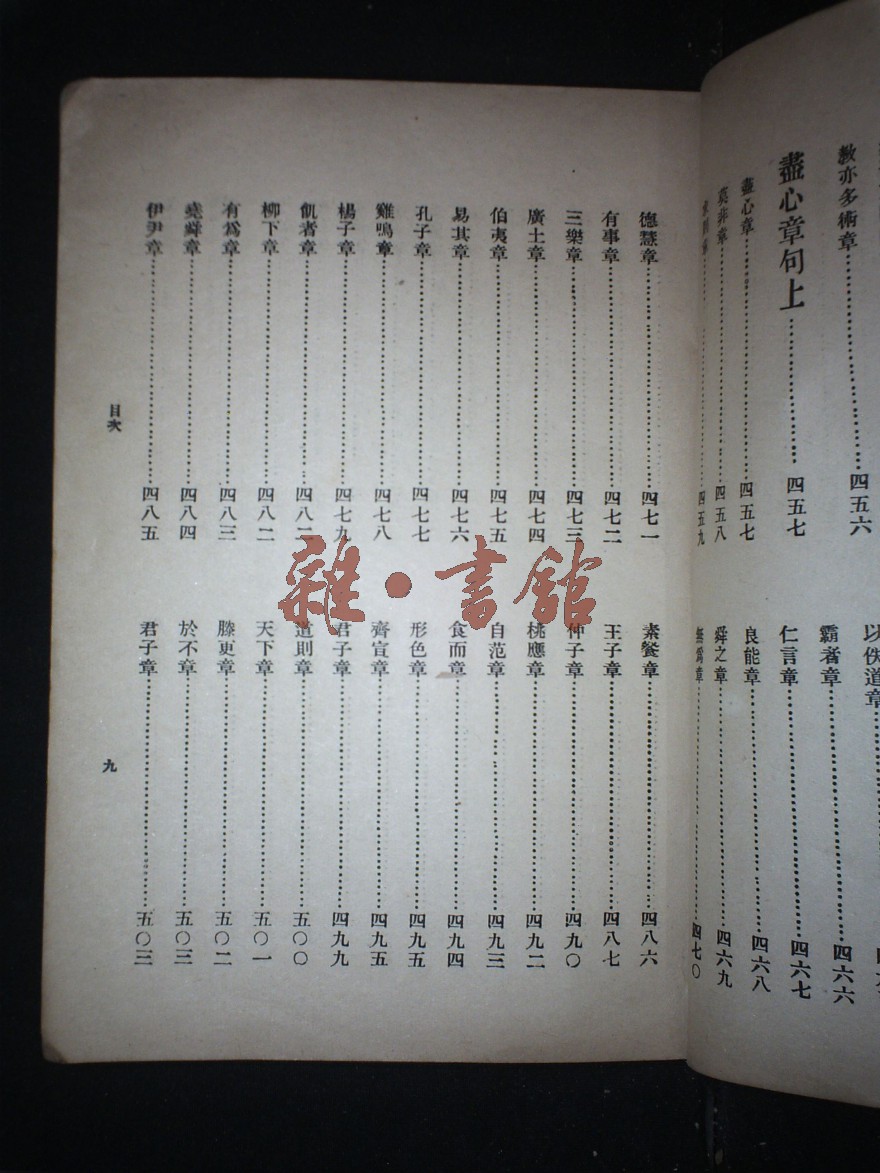 敎亦多術章……四五六
盡心章句上……四五七
盡心章……四五七
莫非章……四五八
四五九
以佚道章……
霸者章……四六六
仁言章……四六七
良能章……四六八
舜之章……四六九
無爲章……四七〇
德慧章……四七一
有事章……四七二
三樂章……四七三
廣土章……四七四
伯夷章……四七五
易其章……四七六
孔子章……四七七
雞鳴章……四七八
楊子章……四七九
飢者章……四八二
柳下章……四八二
有爲章……四八三
堯舜章……四八四
伊尹章……四八五
素餐章……四八六
王子章……四八七
仲子章……四九〇
桃應章……四九二
自范章……四九三
食而章……四九四
形色章……四九五
齊宣章……四九五
君子章……四九九
道則章……五〇〇
天下章……五〇一
滕更章……五〇二
於不章……五〇三
君子章……五〇三
目次
九
雜·書館